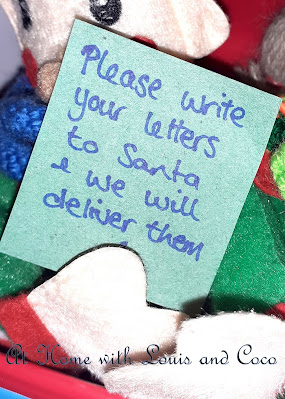 Please write
your letters
to Santa
& we will
deliver them
At Home with Louis and Coco